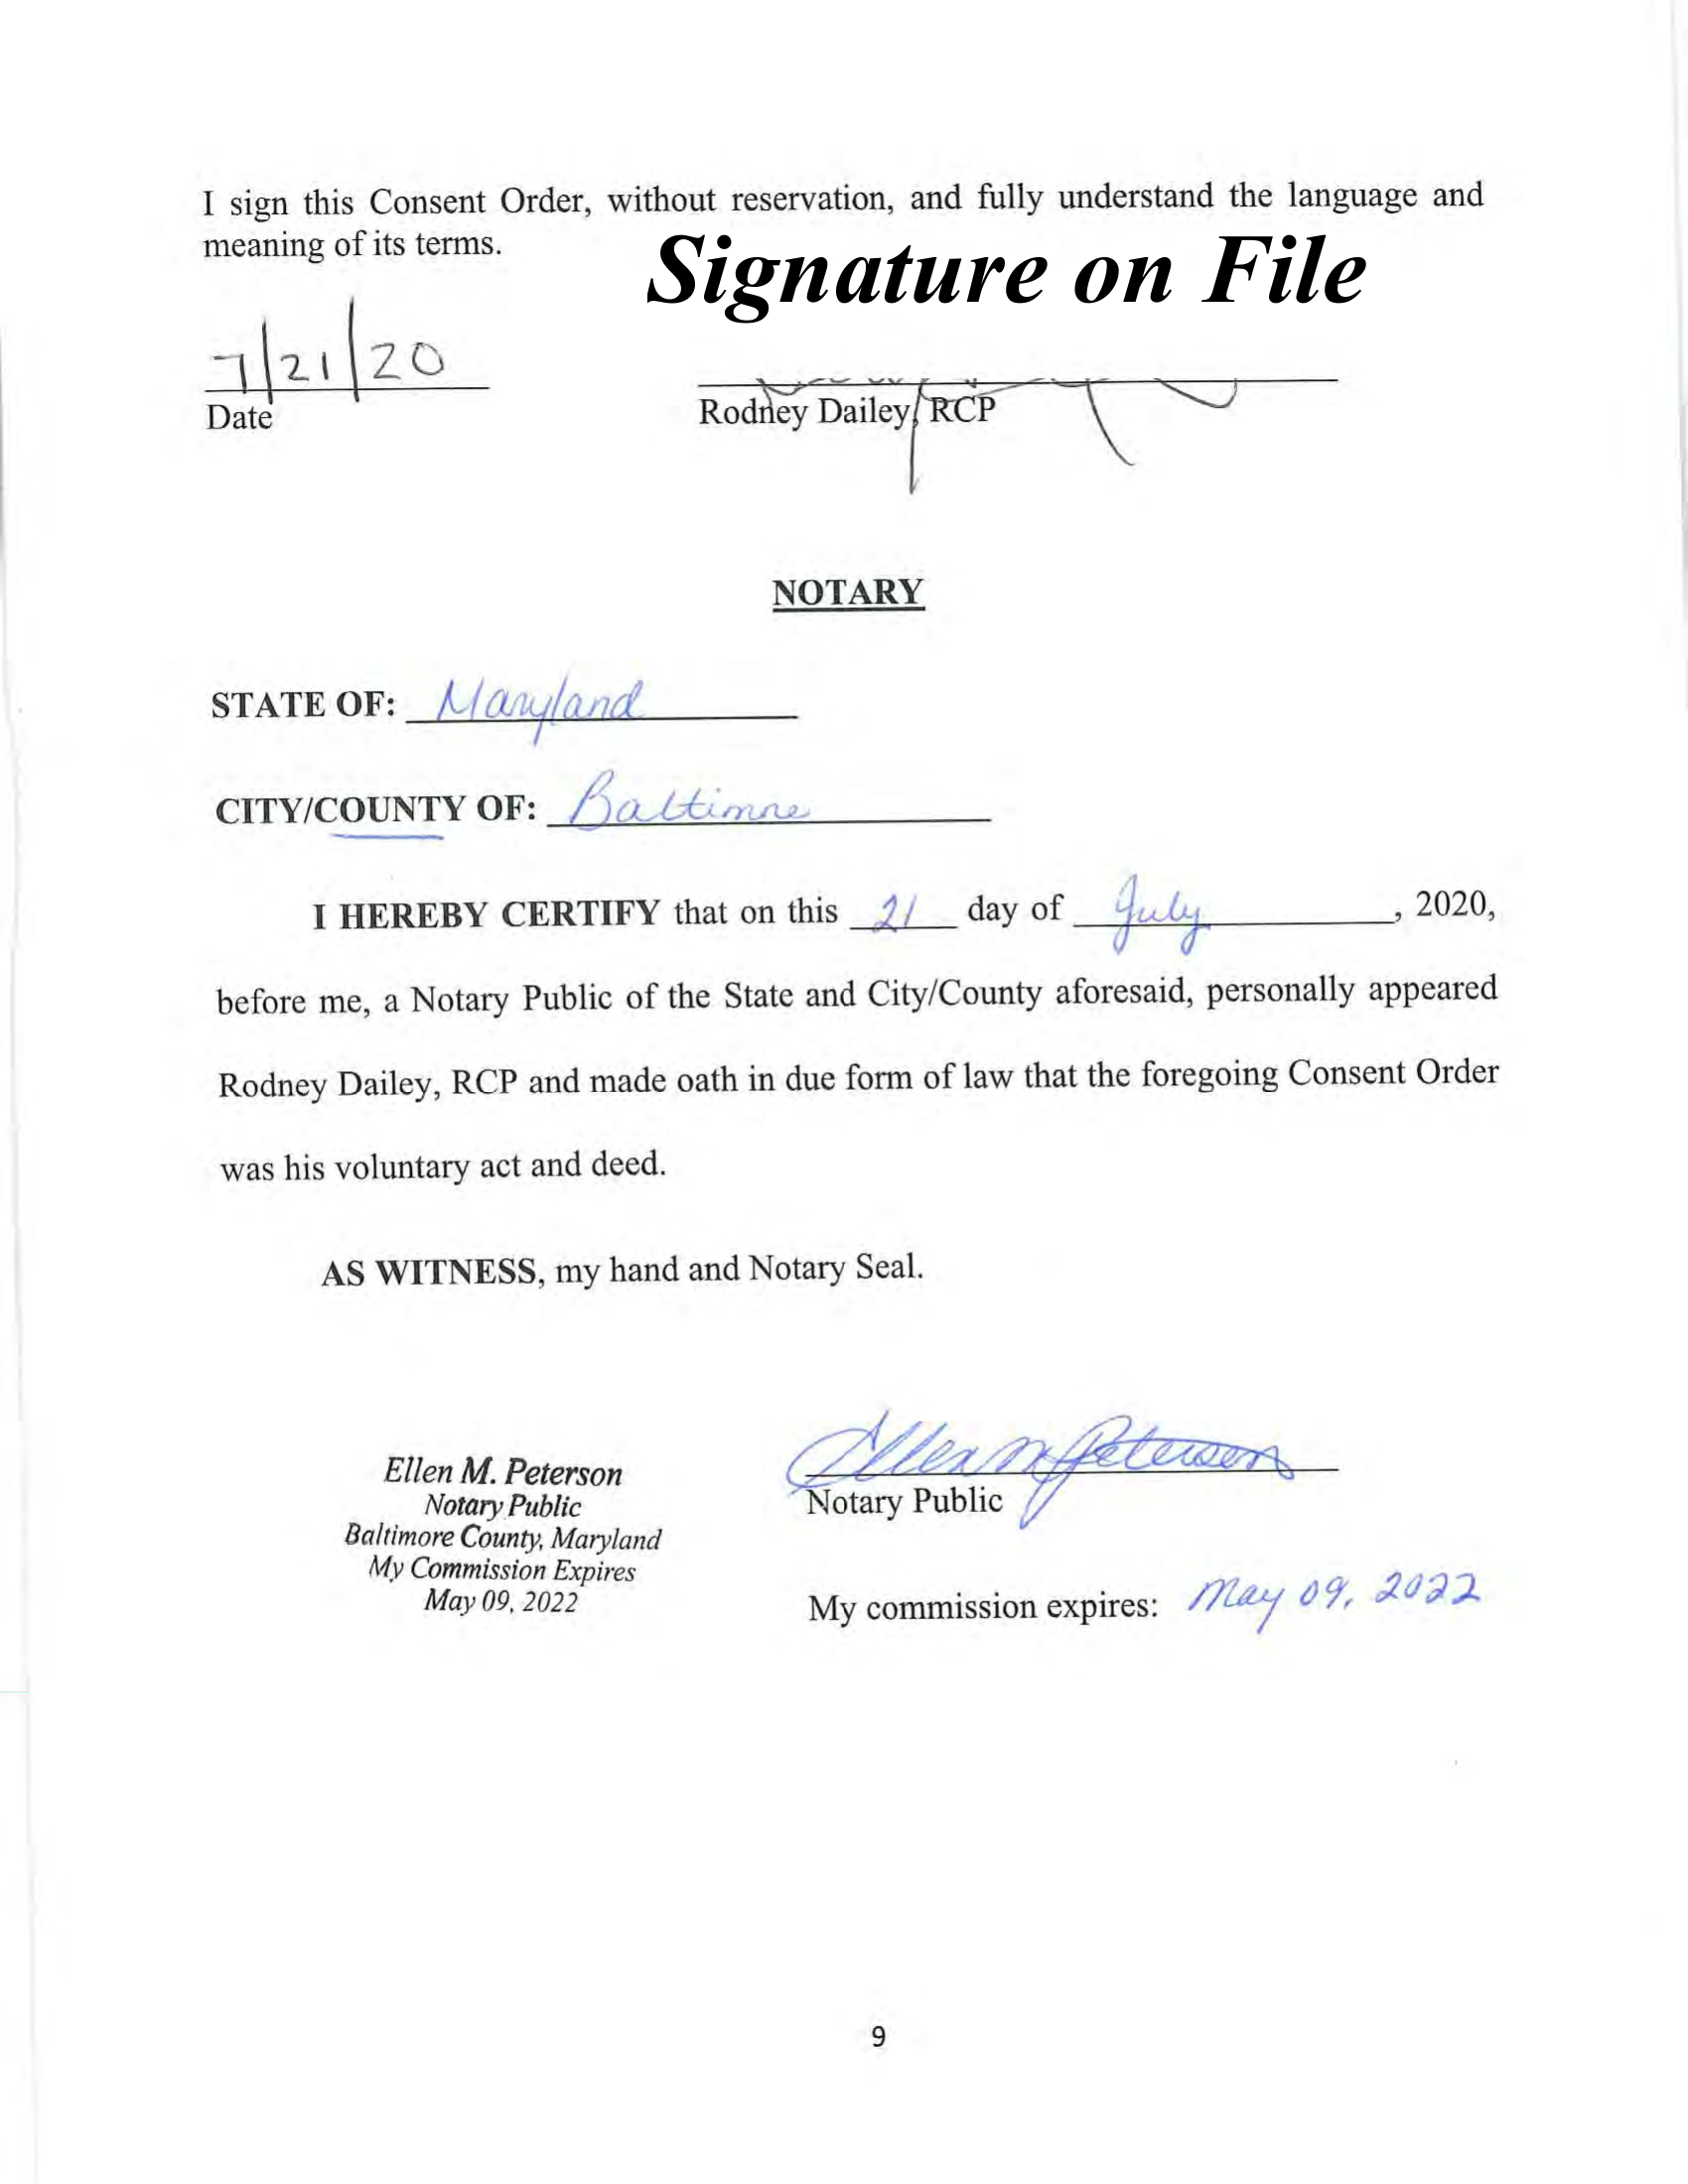 I sign this Consent Order, without reservation, and fully understand the language and
meaning of its terms.
Signature on File
7/21/20
Date
Rodney Dailey, RCP
NOTARY
STATE OF: Maryland
CITY/COUNTY OF: Baltimore
I HEREBY CERTIFY that on this 21 day of July, 2020,
before me, a Notary Public of the State and City/County aforesaid, personally appeared
Rodney Dailey, RCP and made oath in due form of law that the foregoing Consent Order
was his voluntary act and deed.
AS WITNESS, my hand and Notary Seal.
Ellen M. Peterson
Notary Public
Baltimore County, Maryland
My Commission Expires
May 09, 2022
Ellen M Peterson
Notary Public
My commission expires: May 09, 2022
9